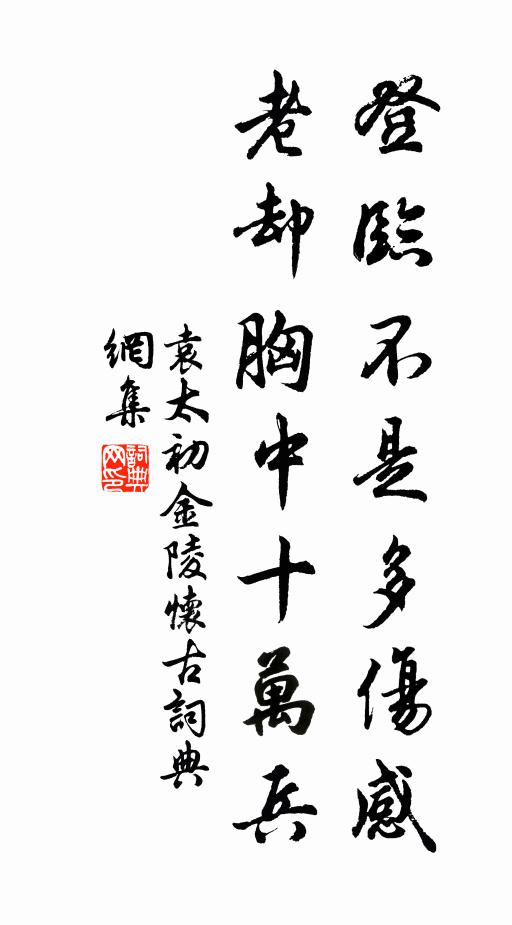 登臨不是多傷感
老却胸中十萬兵
袁太初金陵懷古詞典
網集
詞典
网印